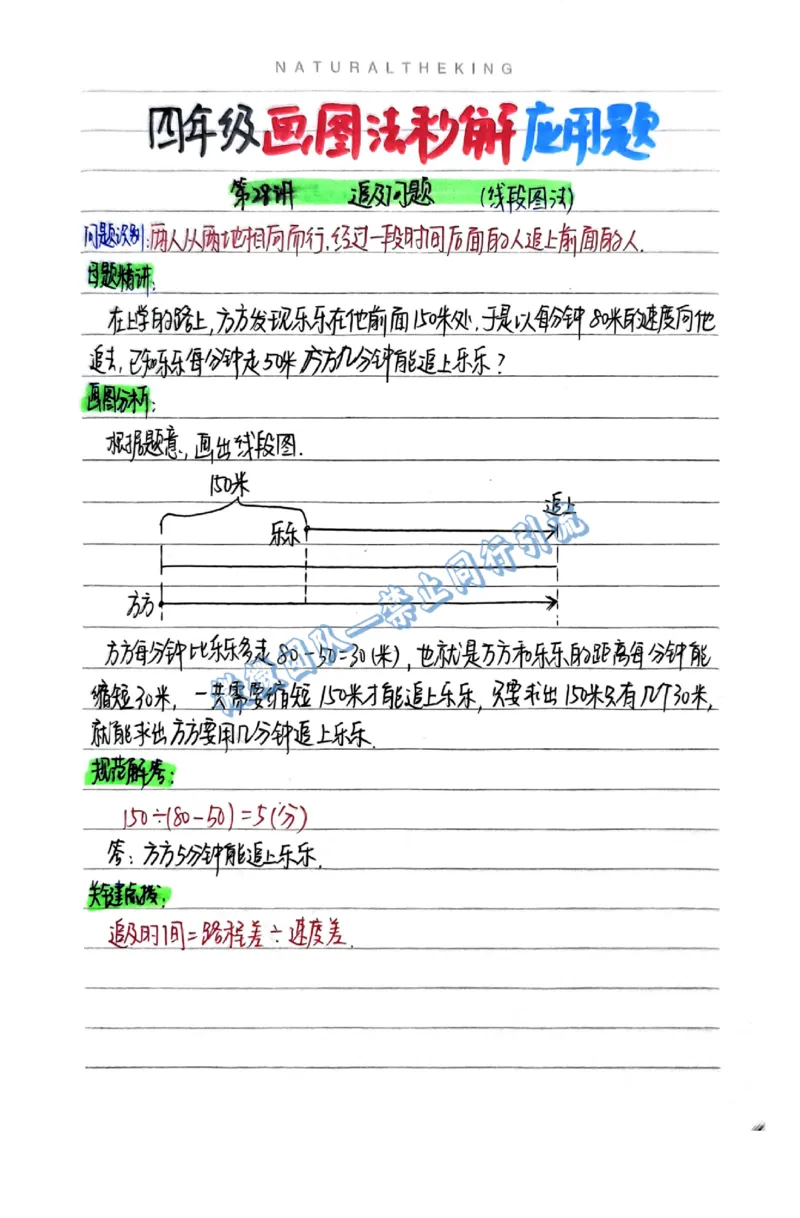 NATURALTHEKING
四年级画图法秒解应用题
第28讲 追及问题 (线段图法)
问题识别:两人从两地相向而行,经过一段时间后面的人追上前面的人.
母题精讲:
在上学的路上,方方发现乐乐在他前面150米处,于是以每分钟80米的速度向他
追去,已知乐乐每分钟走50米 方方几分钟能追上乐乐?
画图分析:
根据题意,画出线段图.
150米
追上
乐乐
方方
方方每分钟比乐乐多走80-50=30(米),也就是方方和乐乐的距离每分钟能
缩短30米,一共需要缩短150米才能追上乐乐,只要求出150米只有几个30米,
就能求出方方要用几分钟追上乐乐.
规范解答:
150÷(80-50)=5(分)
答:方方5分钟能追上乐乐.
关键点拨:
追及时间=路程差÷速度差.
团队—禁止同行引流